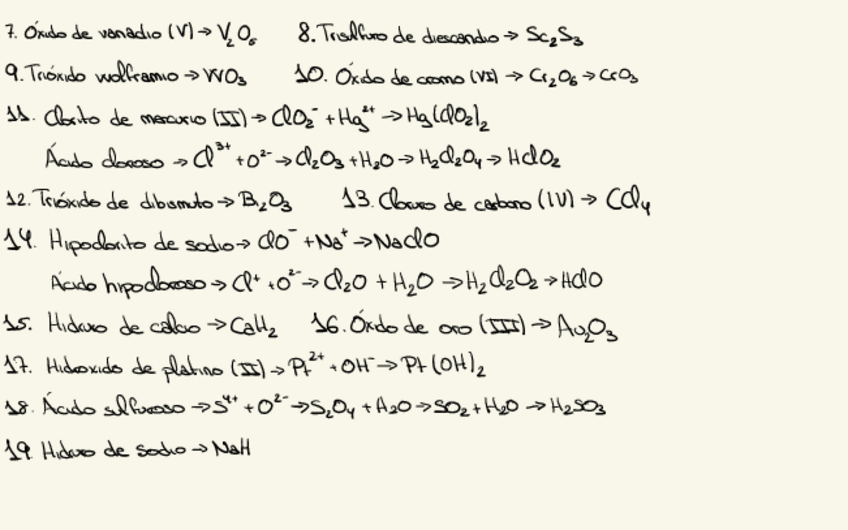 7. Óxido de vanadio (V) → V₂O₅ 8. Trisulfuro de diescandio → Sc₂S₃
9. Trióxido wolframio → WO₃ 10. Óxido de cromo (VI) → Cr₂O₆ → CrO₃
11. Clorito de mercurio (II) → ClO₂⁻ + Hg²⁺ → Hg(ClO₂)₂
Ácido cloroso → Cl³⁺ + O²⁻ → Cl₂O₃ + H₂O → H₂Cl₂O₄ → HClO₂
12. Trióxido de dibismuto → B₂O₃ 13. Cloruro de carbono (IV) → CCl₄
14. Hipoclorito de sodio → ClO⁻ + Na⁺ → NaClO
Ácido hipocloroso → Cl⁺ + O²⁻ → Cl₂O + H₂O → H₂Cl₂O₂ → HClO
15. Hidruro de calcio → CaH₂ 16. Óxido de oro (III) → Au₂O₃
17. Hidroxido de platino (II) → Pt²⁺ + OH⁻ → Pt(OH)₂
18. Ácido sulfuroso → S⁴⁺ + O²⁻ → S₂O₄ + H₂O → SO₂ + H₂O → H₂SO₃
19. Hidruro de sodio → NaH